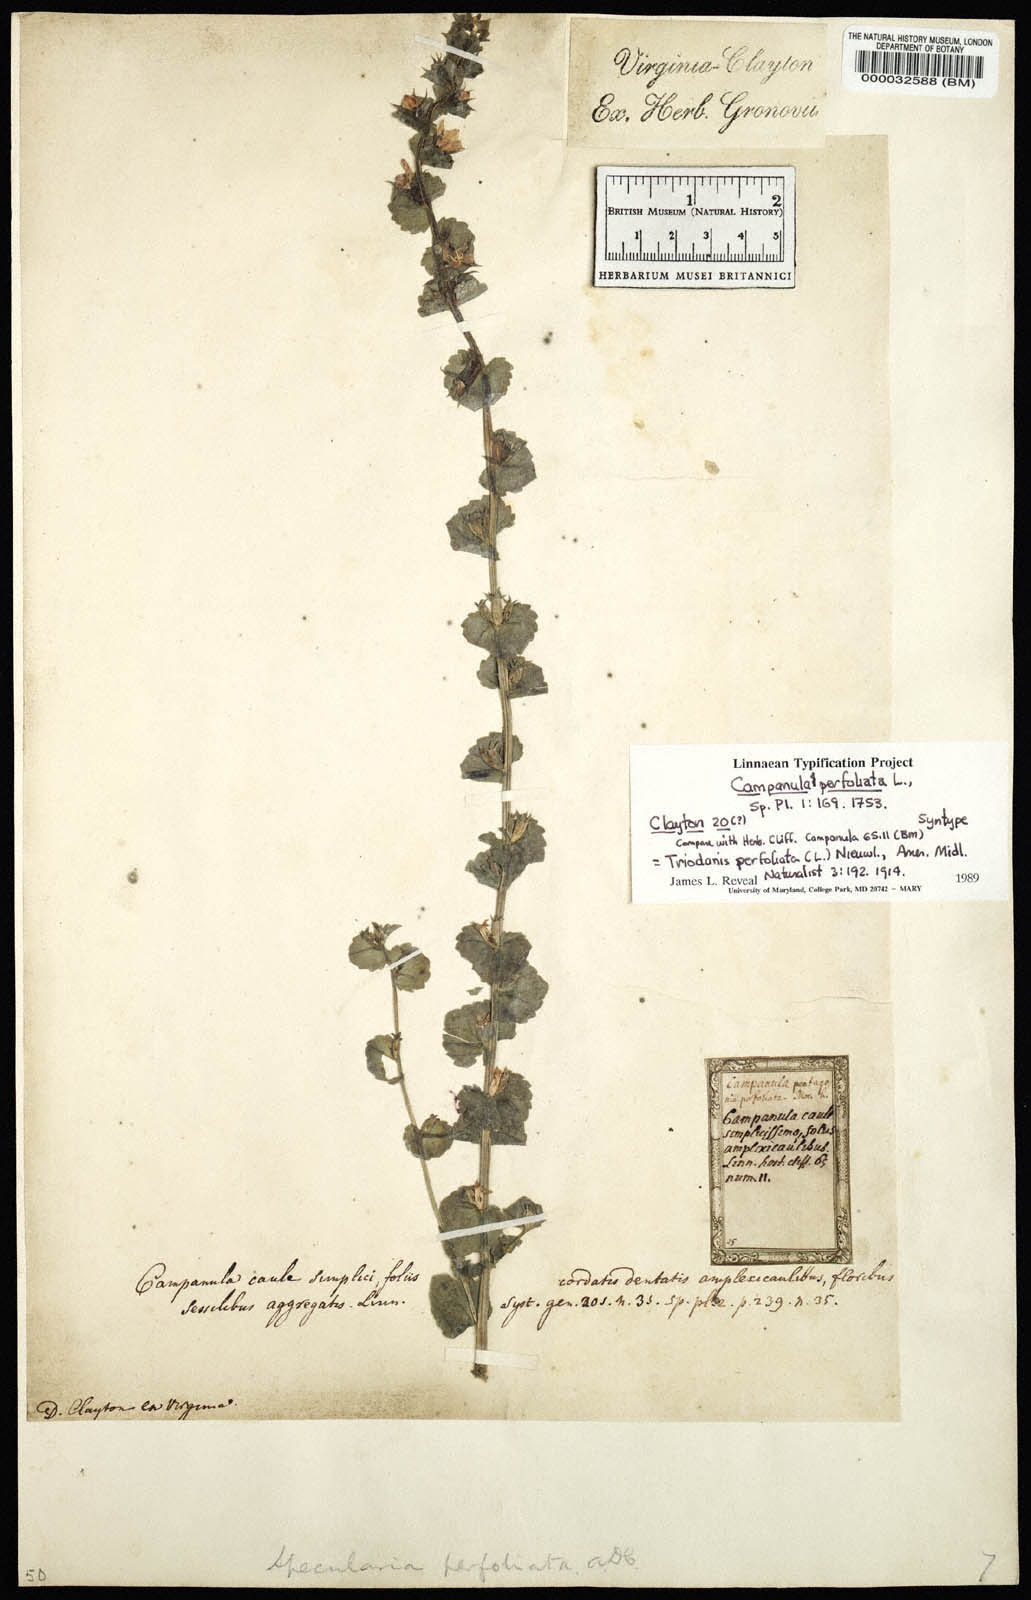 Virginia-Clayton
Ex. Herb. Gronovii
THE NATURAL HISTORY MUSEUM, LONDON
DEPARTMENT OF BOTANY
000032588 (BM)
1 2
BRITISH MUSEUM (NATURAL HISTORY)
1 2 3 4 5
HERBARIUM MUSEI BRITANNICI
Linnaean Typification Project
Campanula perfoliata L.,
Sp. Pl. 1:169. 1753.
Clayton 20(?) Syntype
Compare with Herb. Cliff. Campanula 65.11 (BM)
= Triodanis perfoliata (L.) Nieuwl., Amer. Midl.
Naturalist 3:192. 1914.
James L. Reveal 1989
University of Maryland, College Park, MD 20742 – MARY
Campanula pentago
nia perfoliata. Mor. h.
Campanula caule
simplicissimo, foliis
amplexicaulibus.
Linn. hort. cliff. 65
num. 11.
Campanula caule simplici, foliis cordatis dentatis amplexicaulibus, floribus
sessilibus aggregatis. Linn. Syst. gen. 205. n. 35. Sp. pl. 2. p. 239. n. 35.
D. Clayton ex Virginia.
Specularia perfoliata ADC
50
7